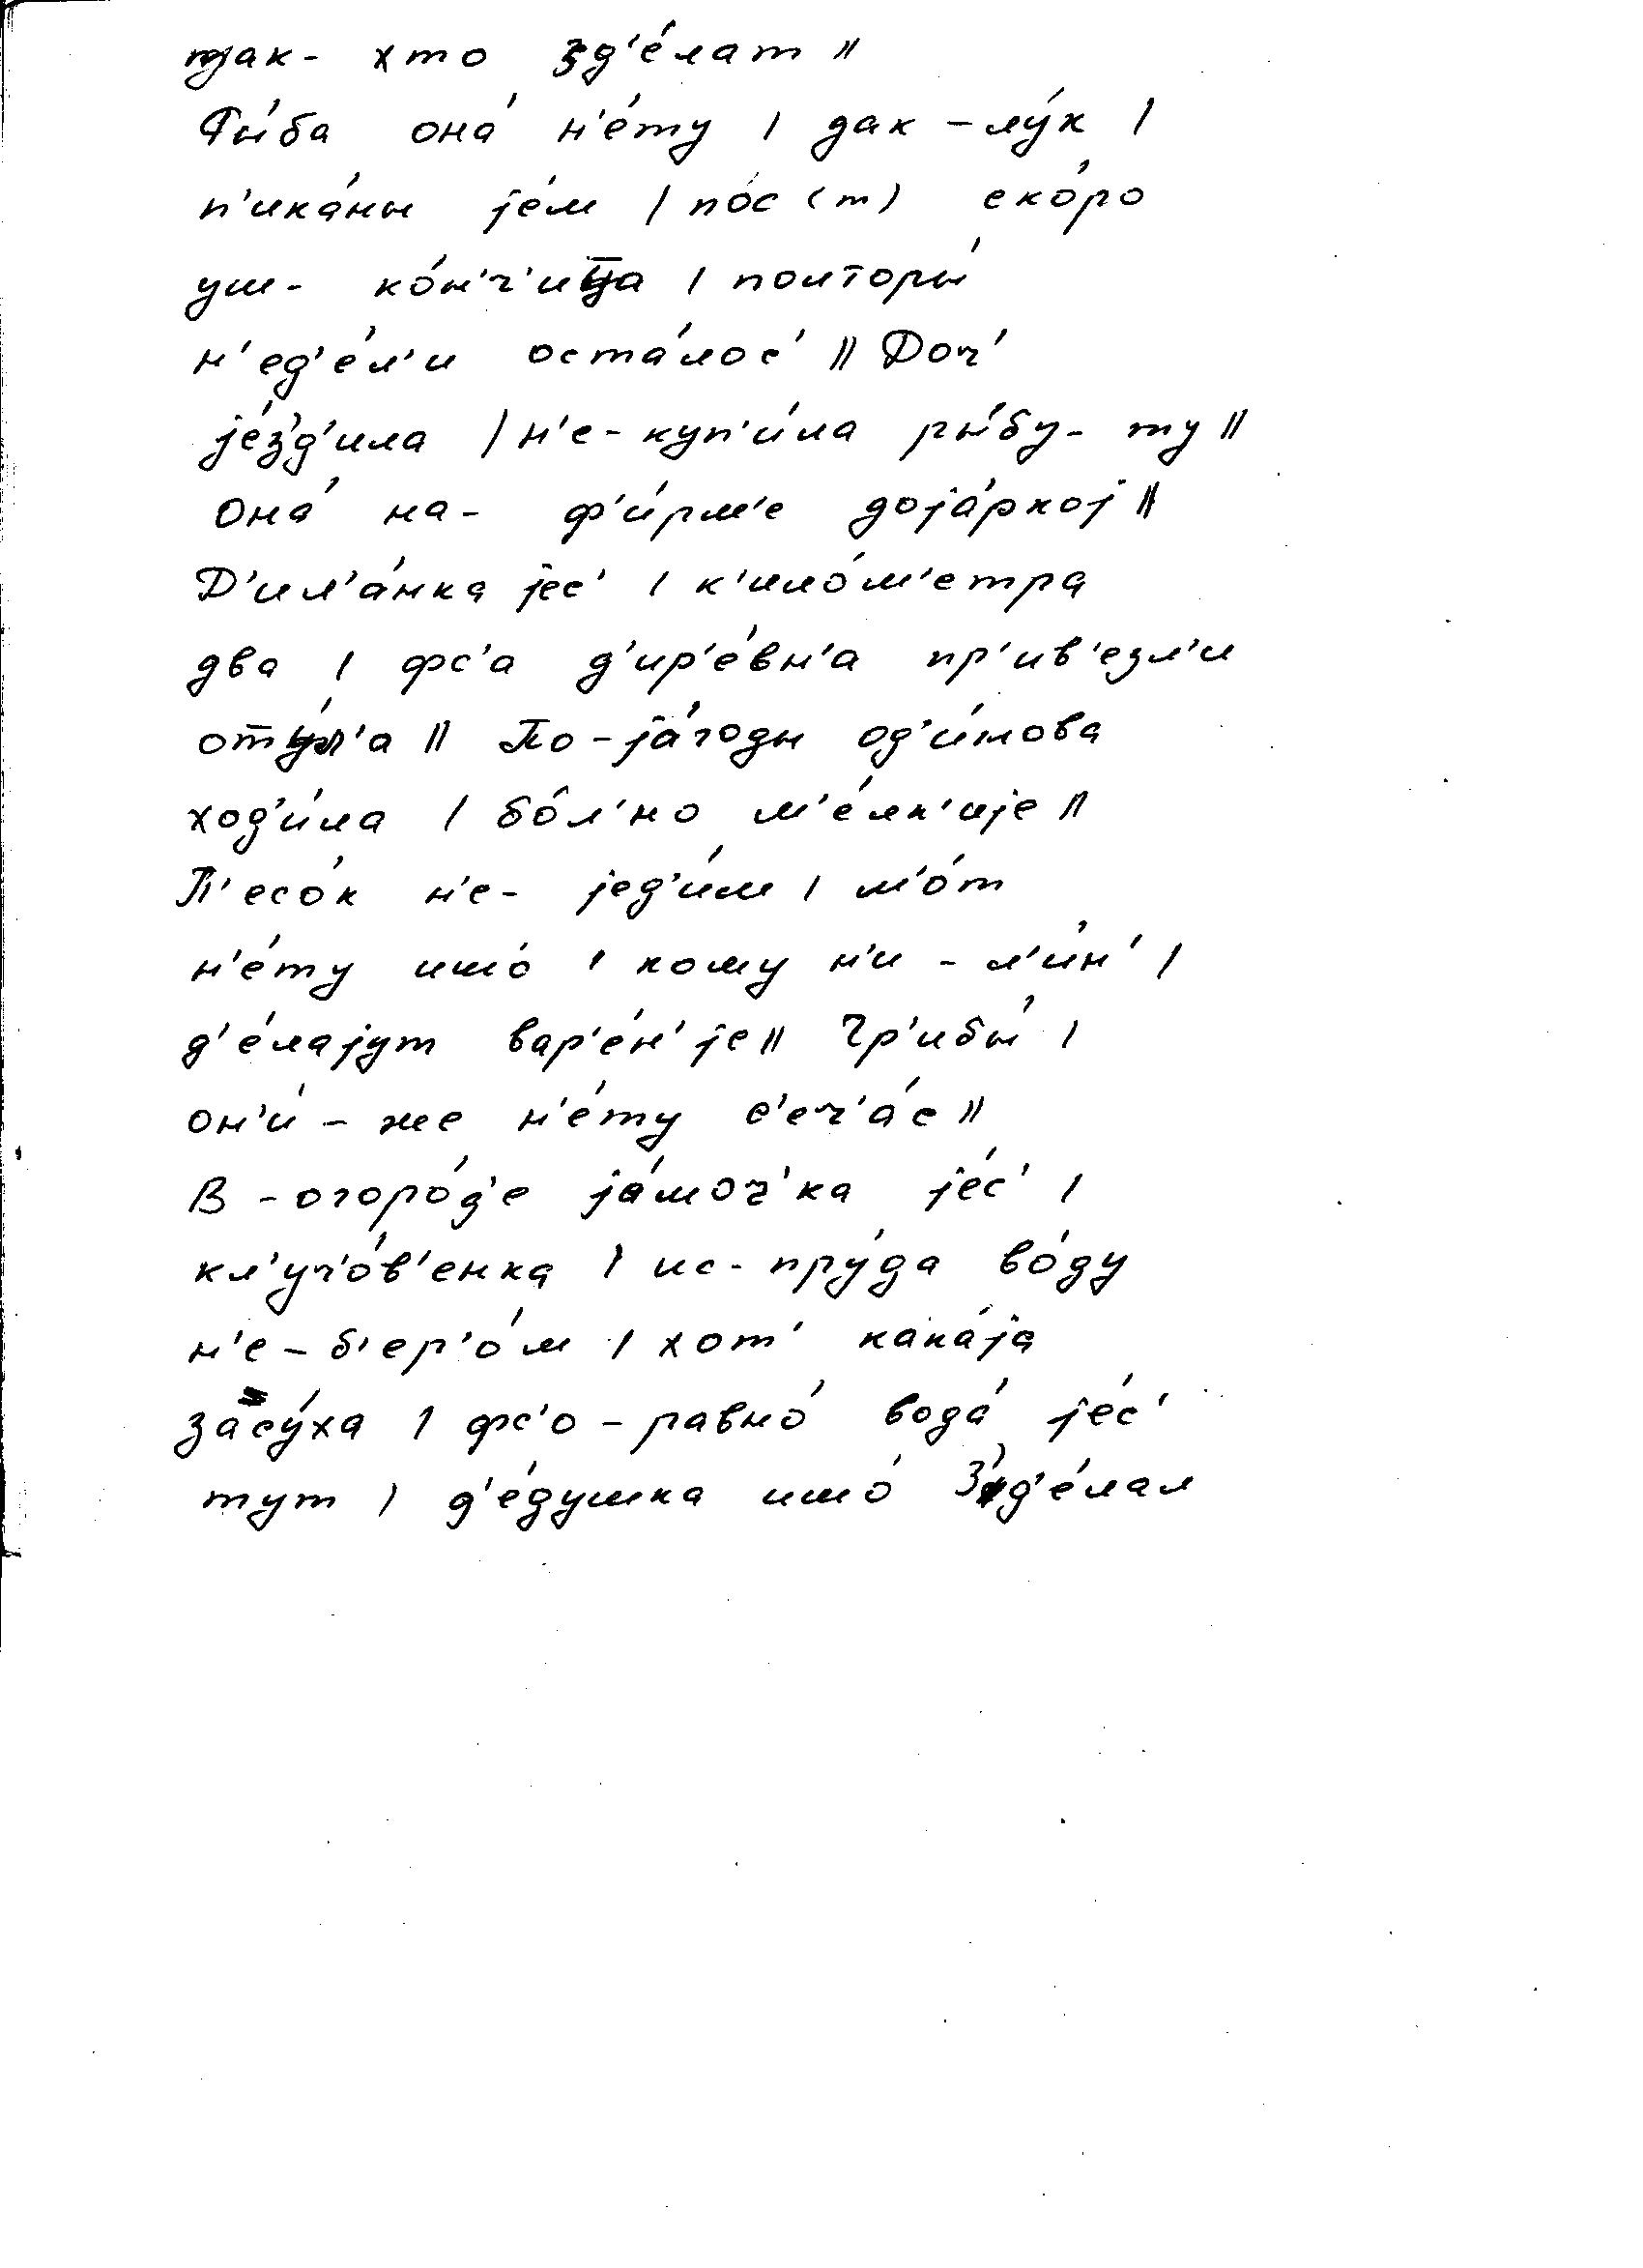 дак- хто зд'е́лат ||
Ры́ба она́ н'е́ту | дак - лу́к |
п'ика́ны је́м | по́с (т) ско́ро
уш- ко́н'ч'ица | полторы́
н'ед'е́л'и оста́лос' || Доч'
је́з'д'ила | н'е- куп'и́ла ры́бу- ту ||
Она́ на- ф'и́рм'е доја́ркој ||
Д'ил'а́нка јес' | к'ило́м'етра
два | фс'а д'ир'е́вн'а пр'ив'езл'и
оту́л'а || По - ја́годы од'и́нова
ход'и́ла | бо́л'но м'е́лк'ије ||
П'есо́к н'е- јед'и́м | м'о́т
н'е́ту ишо́ | кому н'и - л'и́н' |
д'е́лајут вар'е́н'је || Гр'ибы́ |
он'и́ - же н'е́ту с'еч'а́с ||
В - огоро́д'е ја́моч'ка је́с' |
кл'уч'о́в'енка | ис- пру́да во́ду
н'е - б'ер'о́м | хот' кака́ја
засу́ха | фс'о - равно́ вода́ је́с'
тут | д'е́душка ишо́ з'д'е́лал